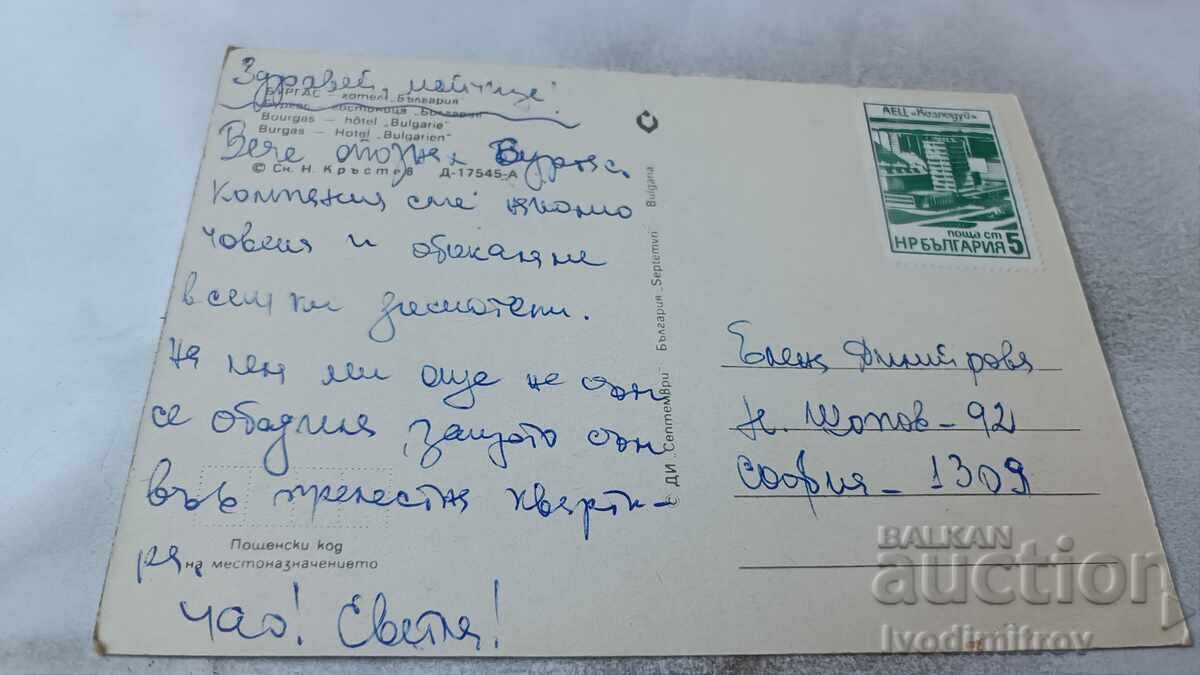 Здравей, майчице!
БУРГАС – хотел „България
Бургас – гостиница „Болгария
Bourgas – hôtel „Bulgarie"
Burgas – Hotel „Bulgarien"
Вече Бургас.
© Сн. Н. Кръстев Д-17545-А
Компания сме няколко
човека и обикаляме
всеки
На ми още не съм
се обадила, защото съм
във прелестна кварти-
ра.
Пощенски код
на местоназначението
Чао!
© ДИ „Септември" България „Septemvri" Bulgaria
АЕЦ „Козлодуй"
поща ст
НР БЪЛГАРИЯ 5
Елена Димитрова
Шопов – 92
София – 1309
BALKAN
auction
Ivodimitrov